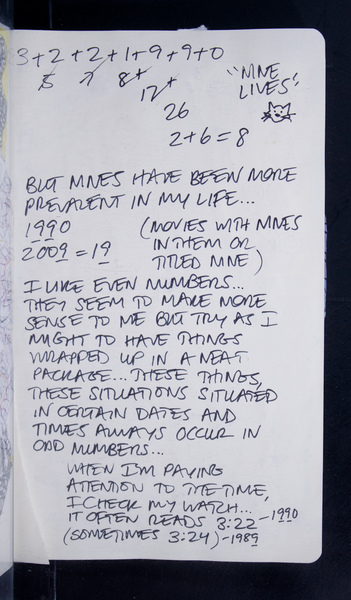 3+2+2+1+9+9+0
5 7 8+
17+
26
2+6=8
"NINE LIVES"
BUT NINES HAVE BEEN MORE
PREVALENT IN MY LIFE...
1990
2009=19
(MOVIES WITH NINES
IN THEM OR
TITLED NINE)
I LIKE EVEN NUMBERS...
THEY SEEM TO MAKE MORE
SENSE TO ME BUT TRY AS I
MIGHT TO HAVE THINGS
WRAPPED UP IN A NEAT
PACKAGE... THESE THINGS,
THESE SITUATIONS SITUATED
IN CERTAIN DATES AND
TIMES ALWAYS OCCUR IN
ODD NUMBERS...
WHEN I'M PAYING
ATTENTION TO THE TIME,
I CHECK MY WATCH...
IT OFTEN READS 3:22 - 1990
(SOMETIMES 3:24) - 1989